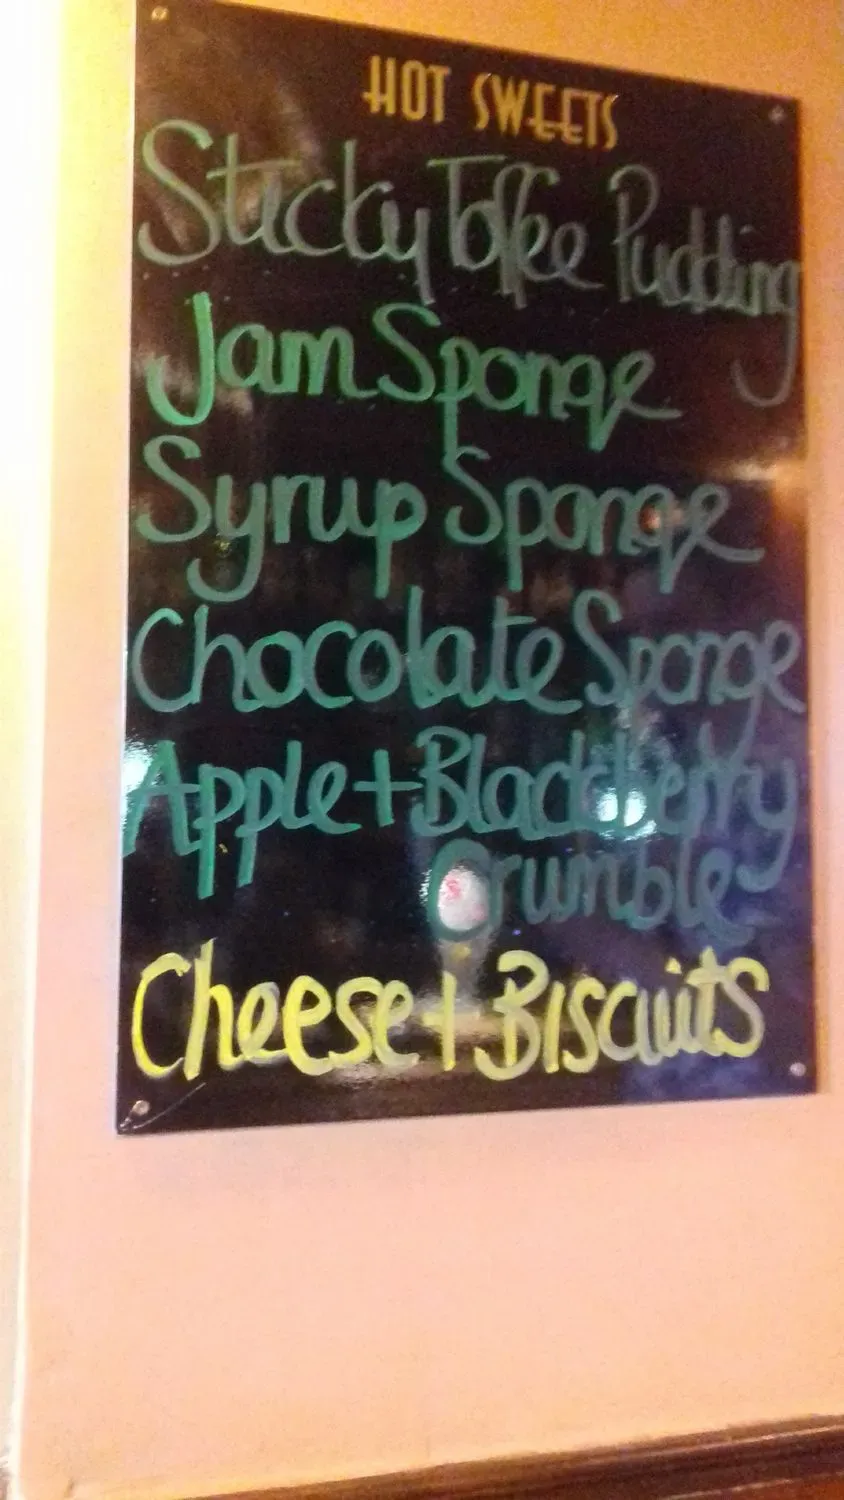 HOT SWEETS
Sticky Toffee Pudding
Jam Sponge
Syrup Sponge
Chocolate Sponge
Apple + Blackberry
Crumble
Cheese + Biscuits